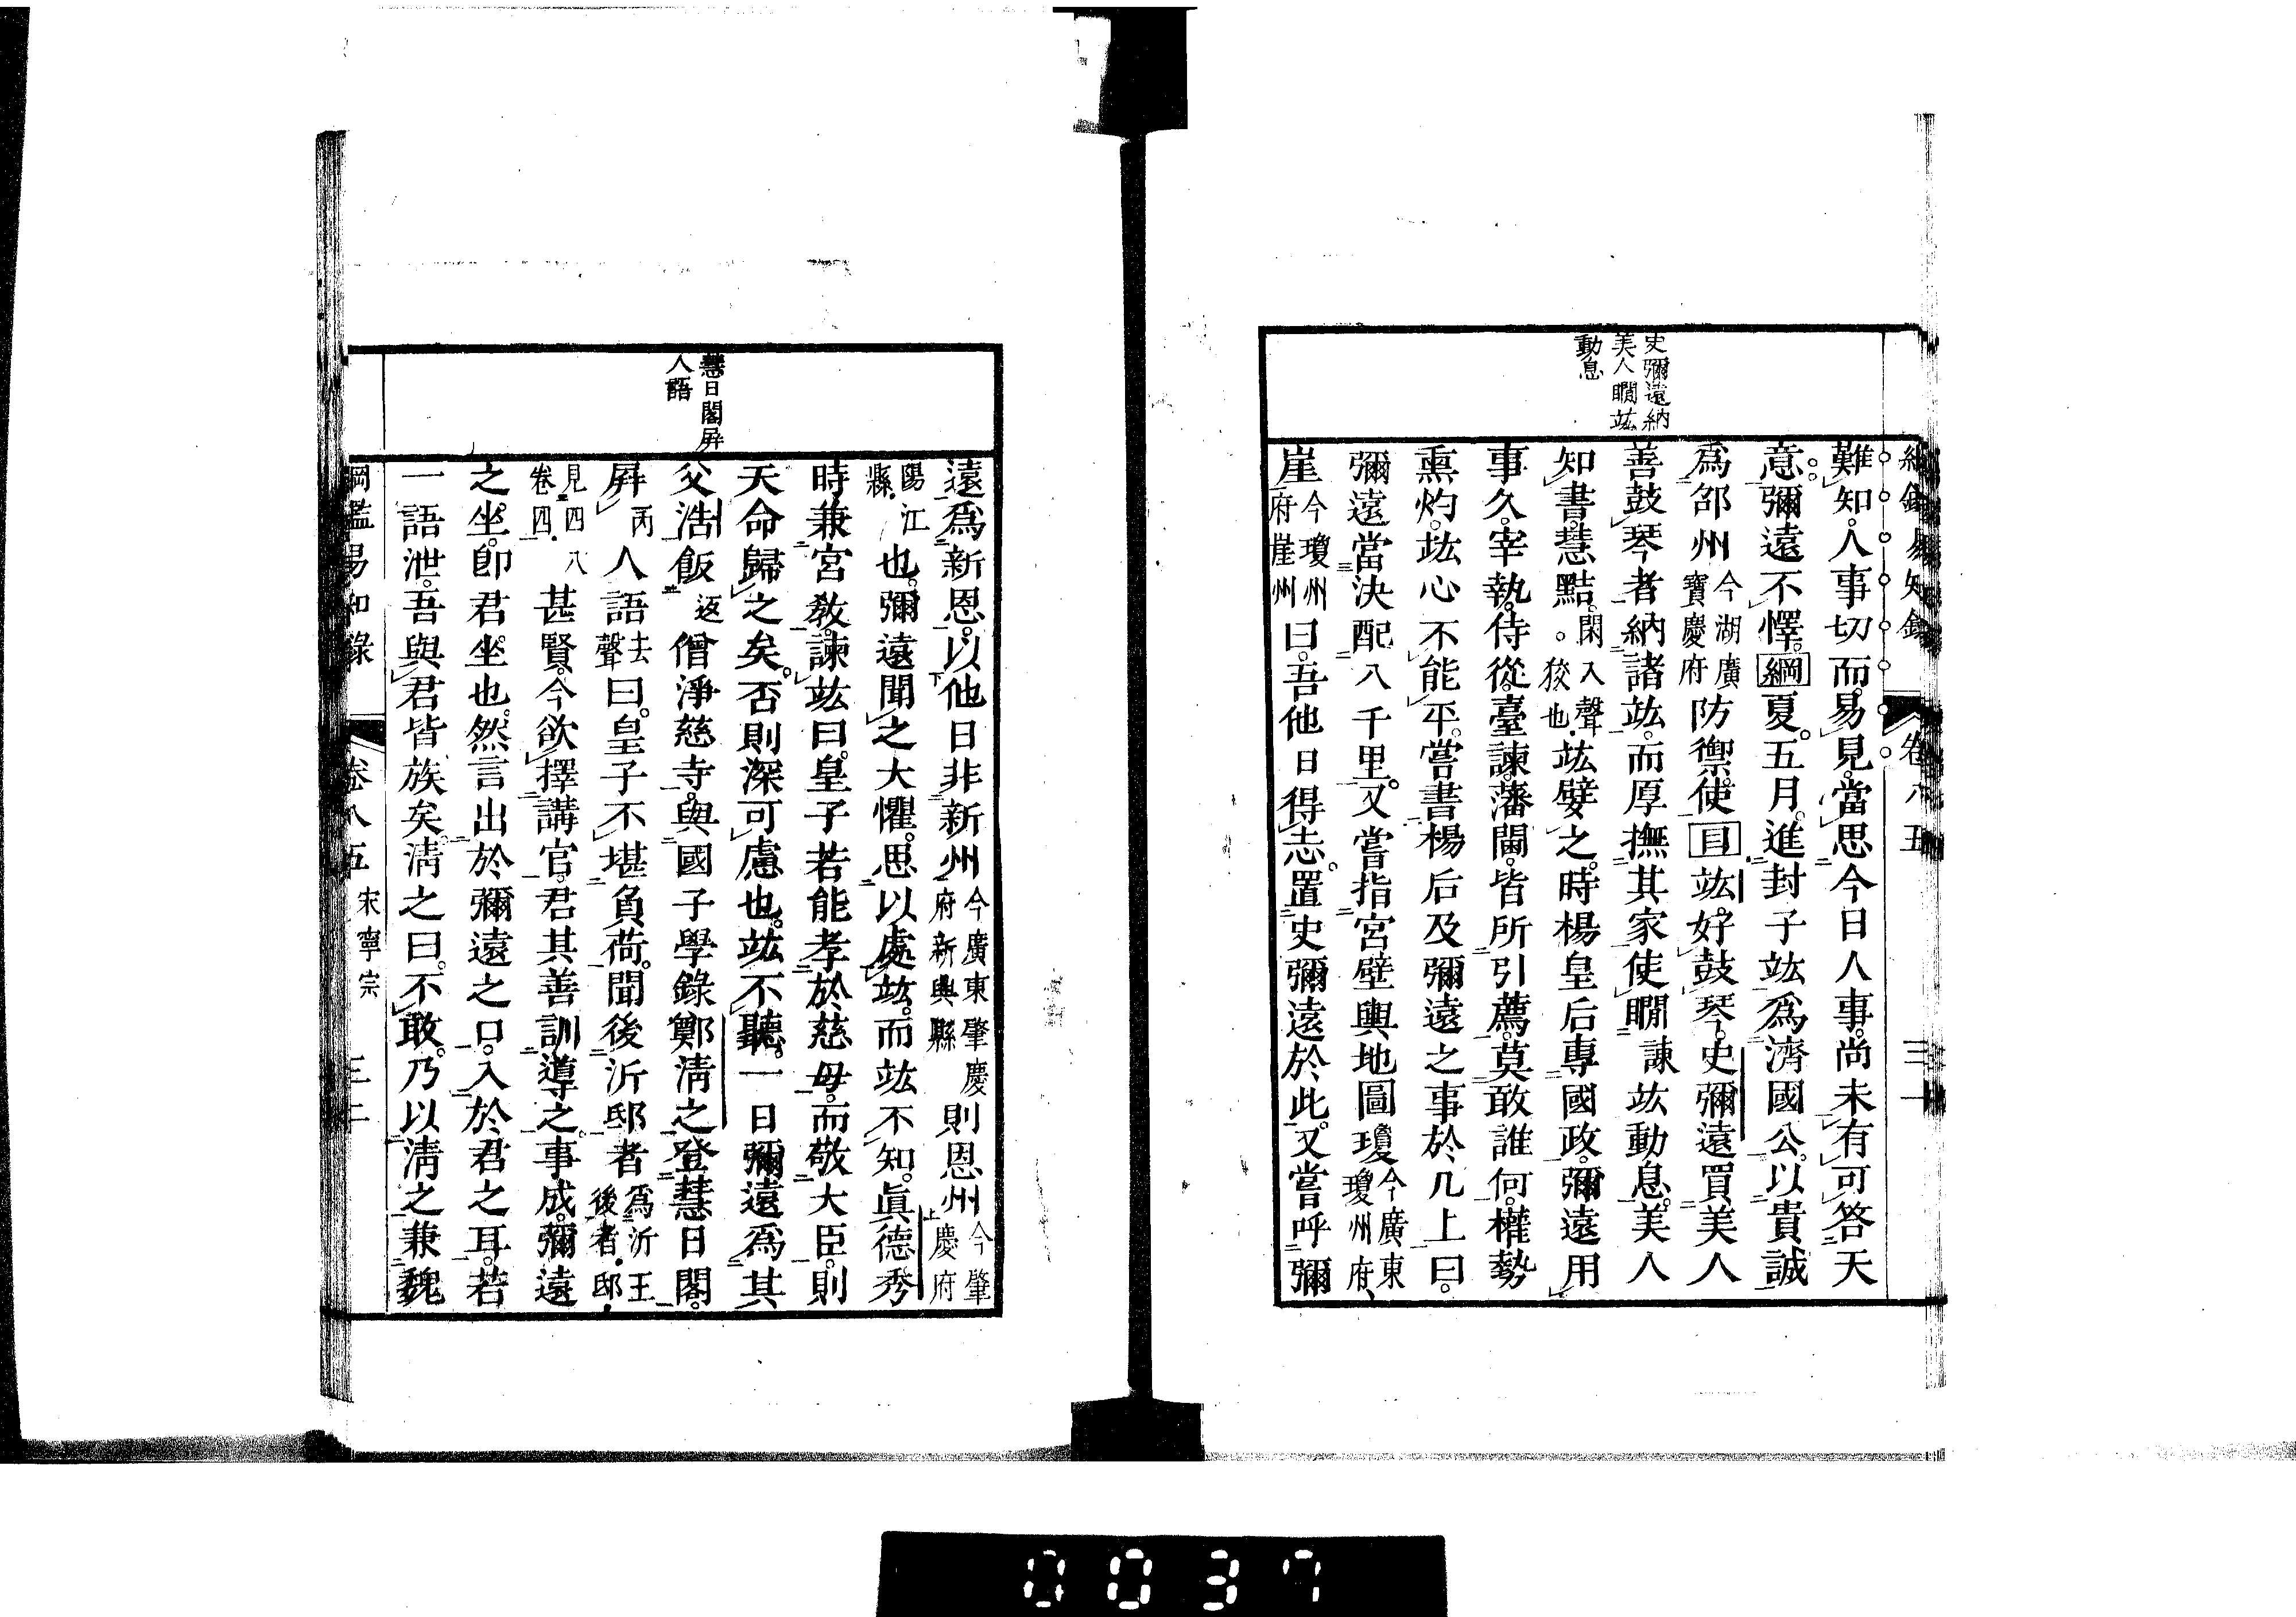 綱鑑易知錄 卷八五 三一
史彌遠納
美人瞷竑
動息
難知。人事切而易見。當思今日人事。尚未有可答天
意。彌遠不懌。綱夏。五月。進封子竑爲濟國公。以貴誠
爲邵州今湖廣寶慶府防禦使。目竑。好鼓琴。史彌遠買美人
善鼓琴者納諸竑。而厚撫其家。使瞷諫竑動息。美人
知書。慧黠。閑入聲。狡也。竑嬖之。時楊皇后專國政。彌遠用
事久。宰執。侍從。臺諫。藩閫。皆所引薦。莫敢誰何。權勢
熏灼。竑心不能平。嘗書楊后及彌遠之事於几上曰。
彌遠當決配八千里。又嘗指宮壁輿地圖瓊今廣東瓊州府、
崖今瓊州府崖州曰。吾他日得志。置史彌遠於此。又嘗呼彌
慧日閣屛
人語
遠爲新恩。以他日非新州今廣東肇慶府新興縣則恩州今肇慶府
陽江縣也。彌遠聞之大懼。思以處竑。而竑不知。眞德秀
時兼宮敎。諫竑曰。皇子若能孝於慈母。而敬大臣。則
天命歸之矣。否則深可慮也。竑不聽。一日彌遠爲其
父浩飯返僧淨慈寺。與國子學錄鄭淸之登慧日閣。
屛丙人語去聲曰。皇子不堪負荷。聞後沂邸者爲沂王後者。邸
見四八卷四甚賢。今欲擇講官。君其善訓導之。事成。彌遠
之坐。卽君坐也。然言出於彌遠之口。入於君之耳。若
一語泄。吾與君皆族矣。淸之曰。不敢。乃以淸之兼魏
綱鑑易知錄 卷八五 宋寧宗 三二
0037